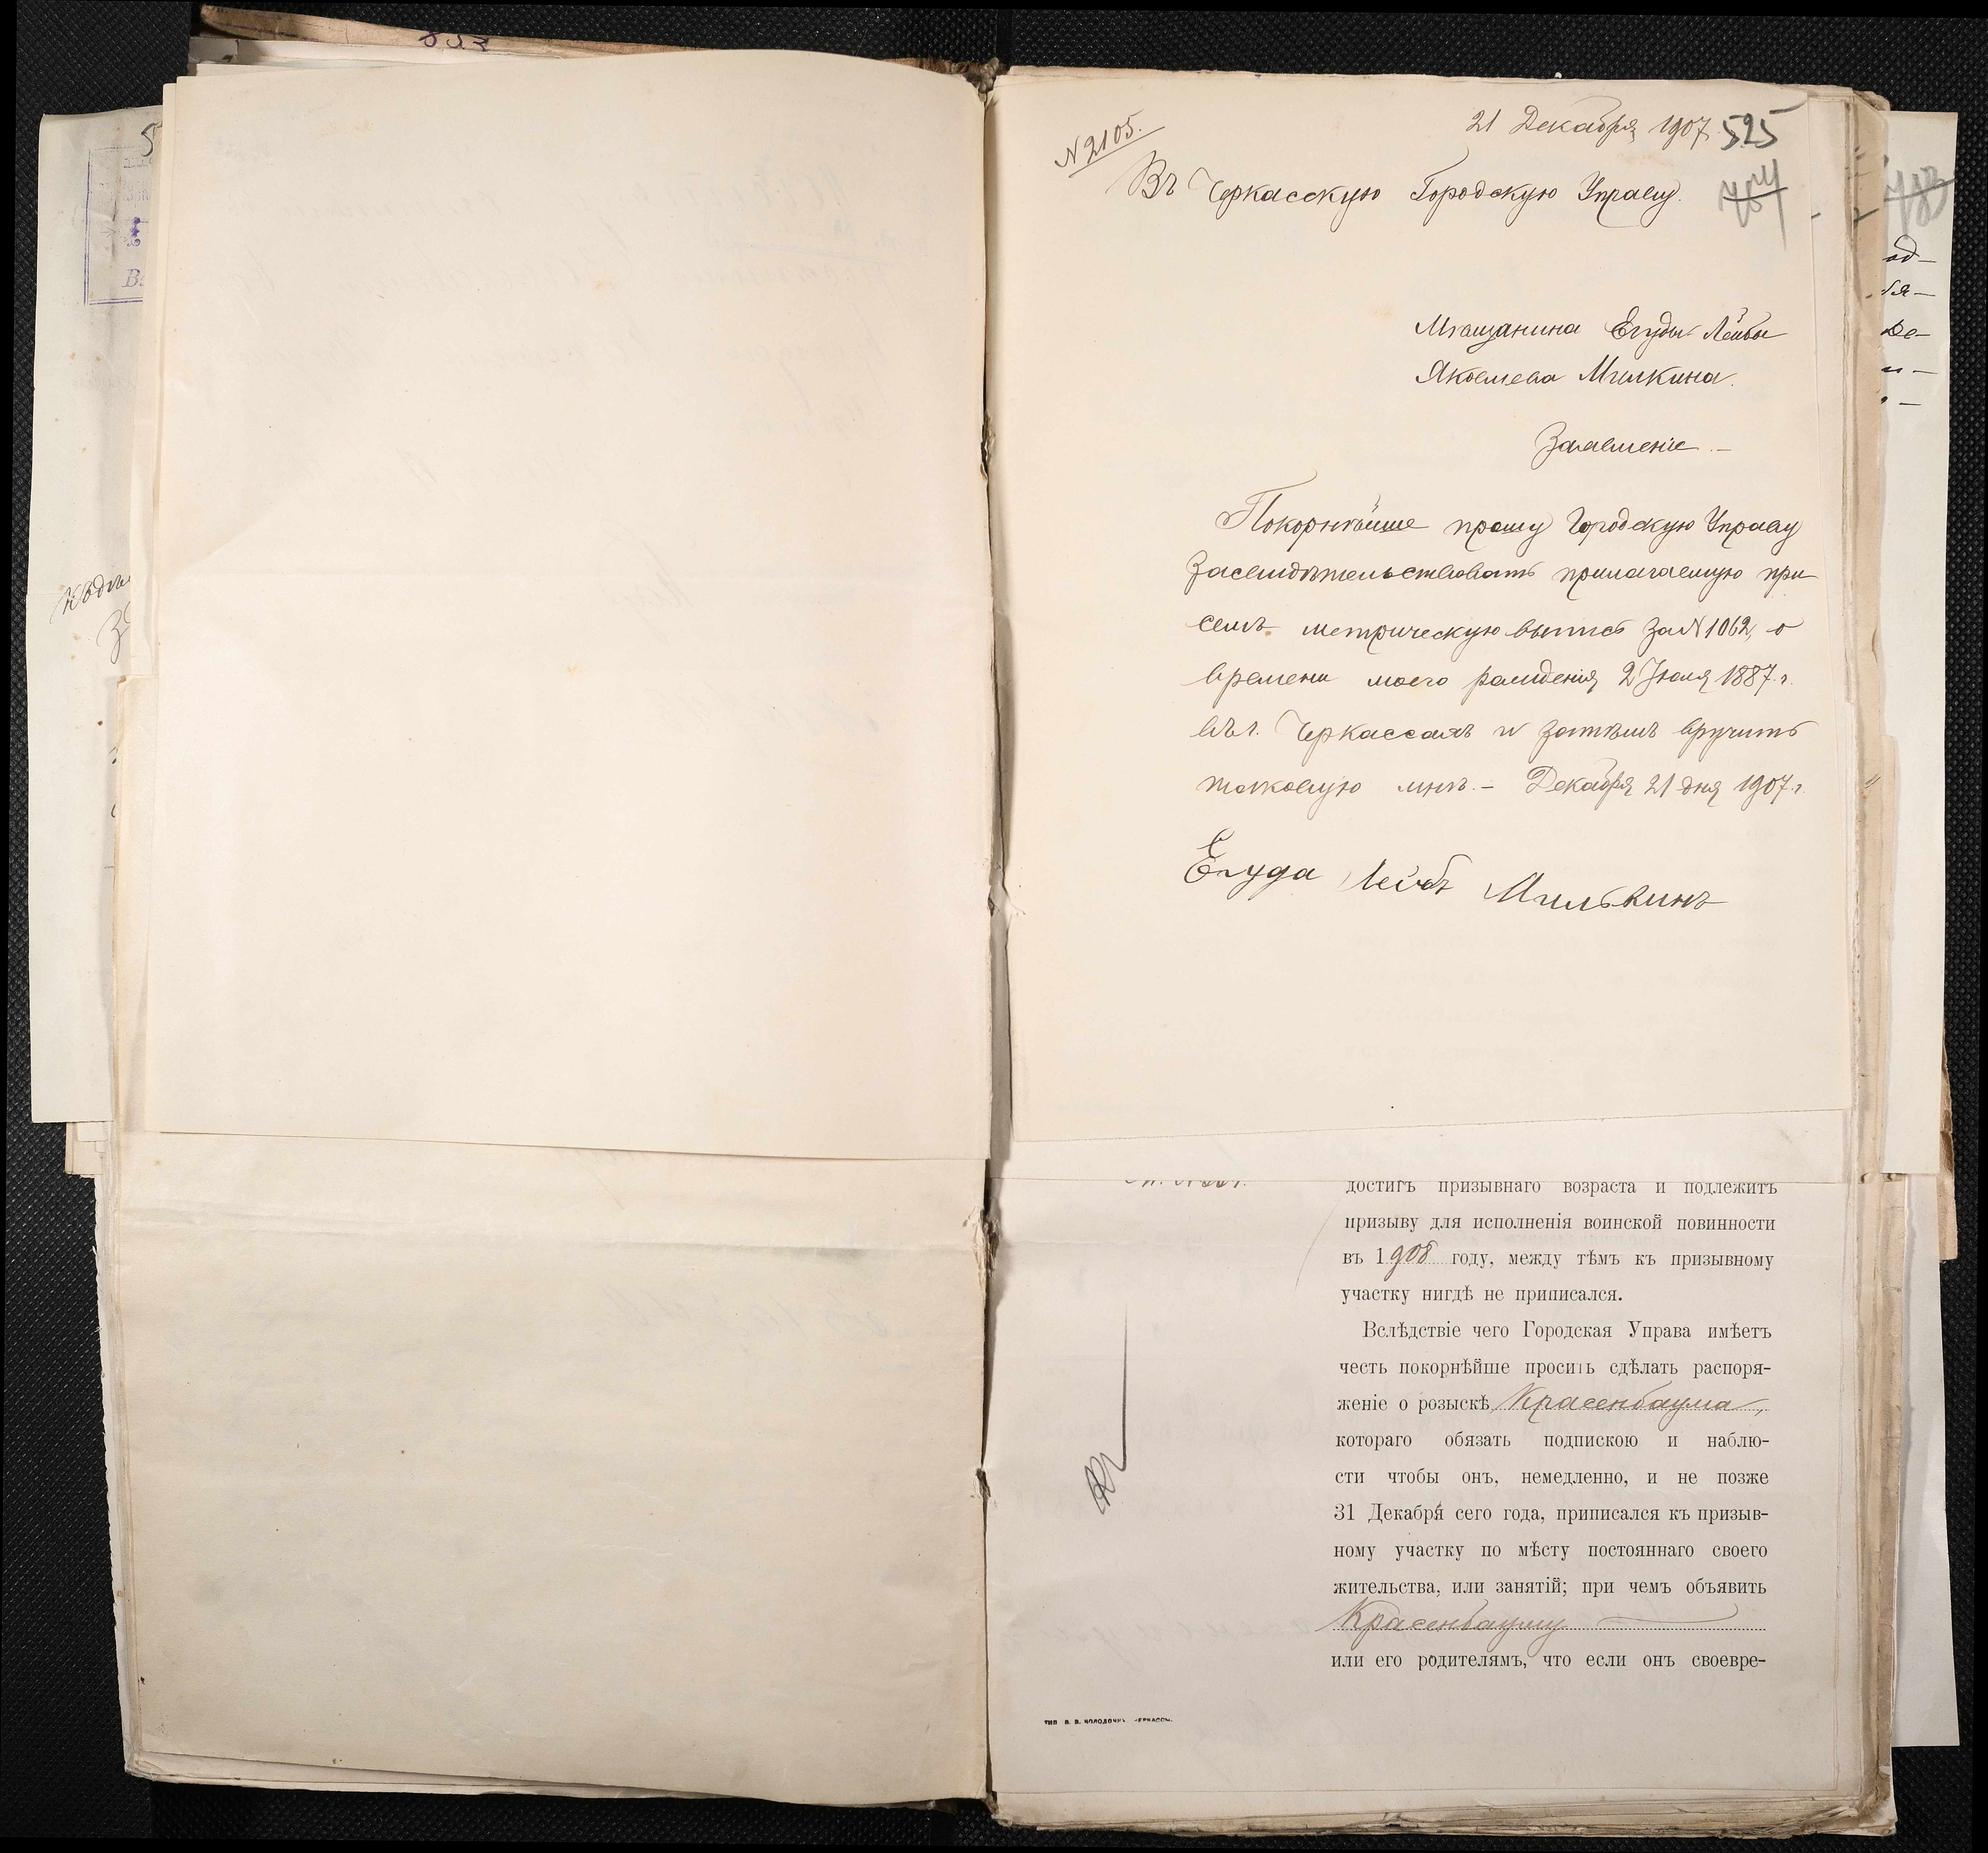 N 2105.
21 Декабря 1907.
525
Въ Черкасскую Городскую Управу.
Мѣщанина Егуды Лейбы
Яковлева Милкина.
Заявленіе.—
Покорнѣйше прошу Городскую Управу
засвидѣтельствовать прилагаемую при
семъ метрическую выпись за N 1062, о
времени моего рожденія 2 Іюля 1887 г.
въ г. Черкассахъ и затѣмъ вручить
таковую мнѣ.— Декабря 21 дня 1907 г.
Егуда Лейбъ Милькинъ
достигъ призывнаго возраста и подлежитъ
призыву для исполненія воинской повинности
въ 1908 году, между тѣмъ къ призывному
участку нигдѣ не приписался.
Вслѣдствіе чего Городская Управа имѣетъ
честь покорнѣйше просить сдѣлать распоря-
женіе о розыскѣ Красенбаума,
котораго обязать подпискою и наблю-
сти чтобы онъ, немедленно, и не позже
31 Декабря сего года, приписался къ призыв-
ному участку по мѣсту постояннаго своего
жительства, или занятій; при чемъ объявить
Красенбауму
или его родителямъ, что если онъ своевре-